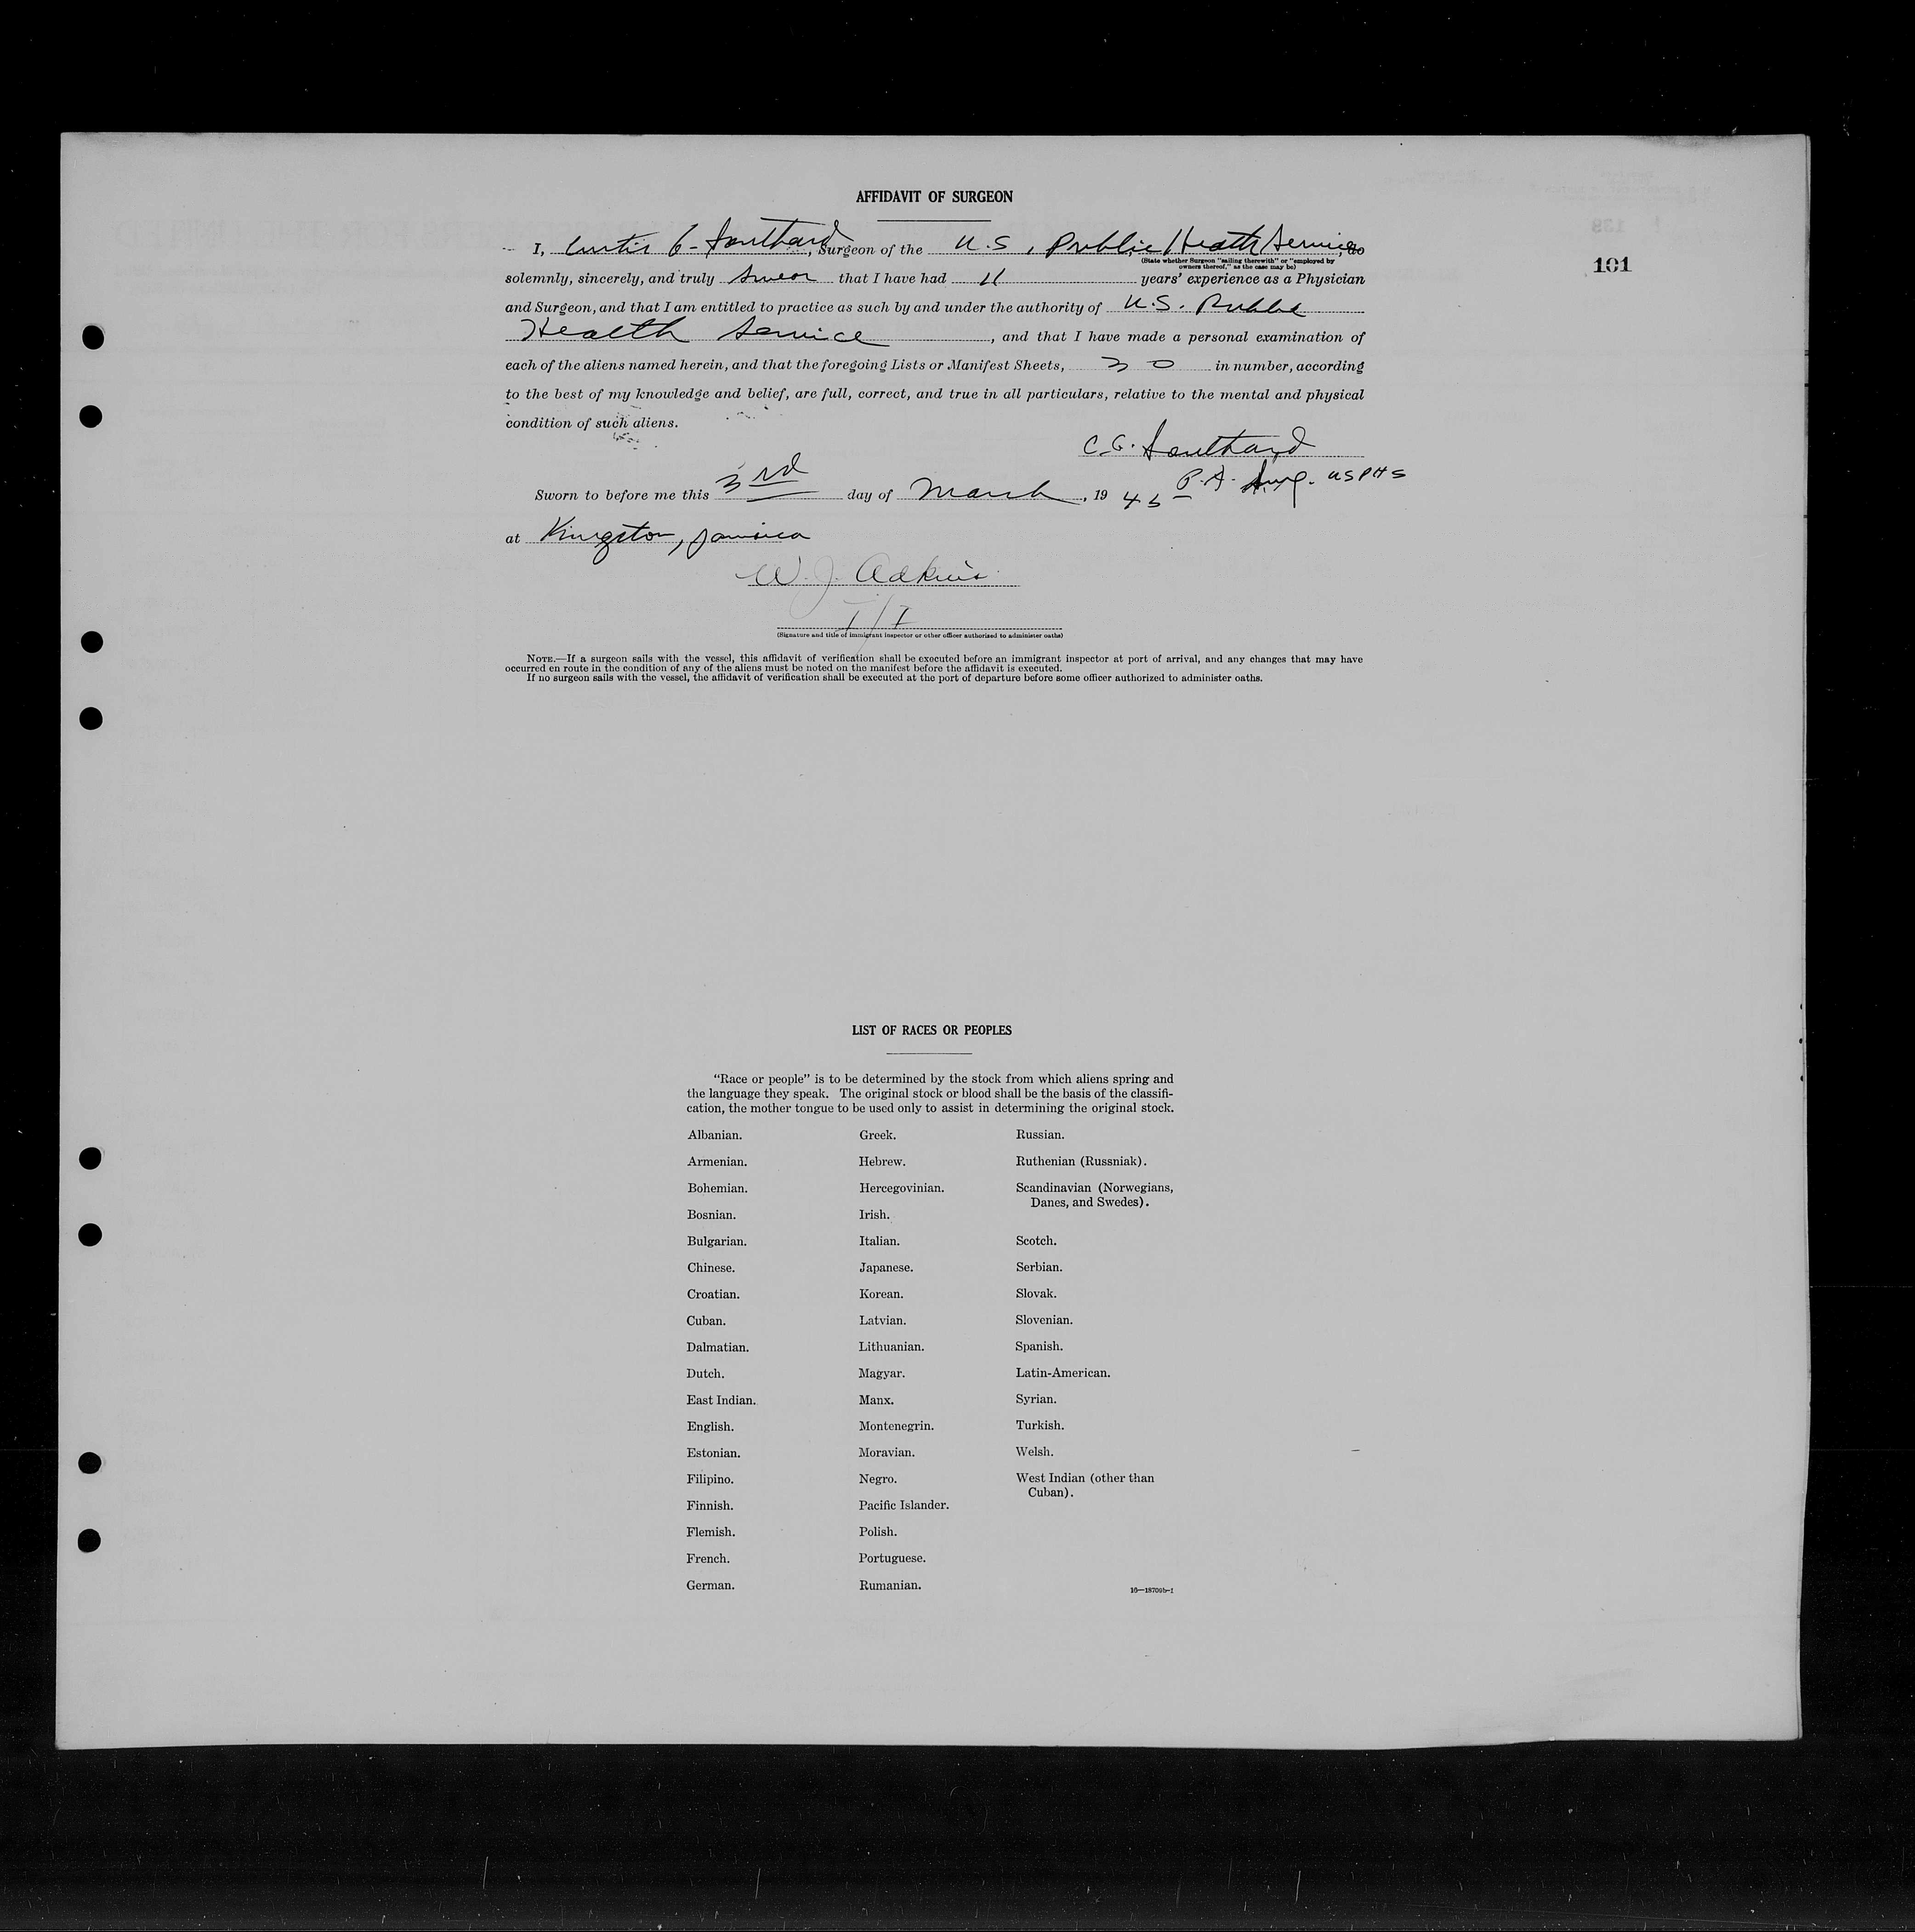 101
AFFIDAVIT OF SURGEON
I, Curtis G. Southard, Surgeon of the U.S. Public Health Service, do
(State whether Surgeon "sailing therewith" or "employed by
owners thereof," as the case may be)
solemnly, sincerely, and truly swear that I have had 11 years' experience as a Physician
and Surgeon, and that I am entitled to practice as such by and under the authority of U.S. Public
Health Service, and that I have made a personal examination of
each of the aliens named herein, and that the foregoing Lists or Manifest Sheets, 30 in number, according
to the best of my knowledge and belief, are full, correct, and true in all particulars, relative to the mental and physical
condition of such aliens.
C.G. Southard
P.A. Surg. USPHS
Sworn to before me this 3rd day of March, 1945
at Kingston, Jamaica
W. J. Adkins
I/I
(Signature and title of immigrant inspector or other officer authorized to administer oaths)
NOTE.—If a surgeon sails with the vessel, this affidavit of verification shall be executed before an immigrant inspector at port of arrival, and any changes that may have
occurred en route in the condition of any of the aliens must be noted on the manifest before the affidavit is executed.
If no surgeon sails with the vessel, the affidavit of verification shall be executed at the port of departure before some officer authorized to administer oaths.
LIST OF RACES OR PEOPLES
"Race or people" is to be determined by the stock from which aliens spring and
the language they speak. The original stock or blood shall be the basis of the classifi-
cation, the mother tongue to be used only to assist in determining the original stock.
Albanian.
Armenian.
Bohemian.
Bosnian.
Bulgarian.
Chinese.
Croatian.
Cuban.
Dalmatian.
Dutch.
East Indian.
English.
Estonian.
Filipino.
Finnish.
Flemish.
French.
German.
Greek.
Hebrew.
Hercegovinian.
Irish.
Italian.
Japanese.
Korean.
Latvian.
Lithuanian.
Magyar.
Manx.
Montenegrin.
Moravian.
Negro.
Pacific Islander.
Polish.
Portuguese.
Rumanian.
Russian.
Ruthenian (Russniak).
Scandinavian (Norwegians,
Danes, and Swedes).
Scotch.
Serbian.
Slovak.
Slovenian.
Spanish.
Latin-American.
Syrian.
Turkish.
Welsh.
West Indian (other than
Cuban).
16—18709b-1